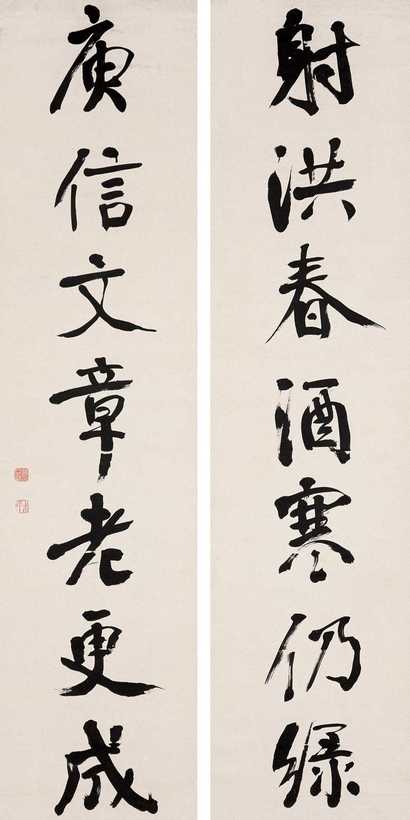 射洪春酒寒仍綠
庾信文章老更成